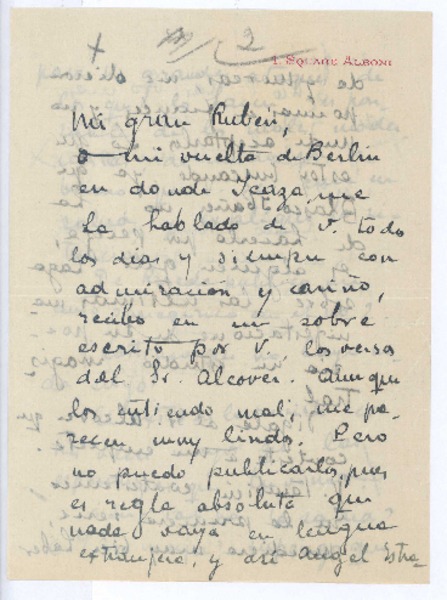 2
1, SQUARE ALBONI
Mi gran Rubén,
a mi vuelta de Berlin
en donde Icaza me
ha hablado de v todo
los dias y siempre con
admiración y cariño,
recibo en un sobre
escrito por V, los versos
del Sr. Alcover. Aunque
los entiendo mal, me pa-
recen muy lindos. Pero
no puedo publicarlos, pues
es regla absoluta que
nada vaya en lengua
extranjera, y así Angel Estra-